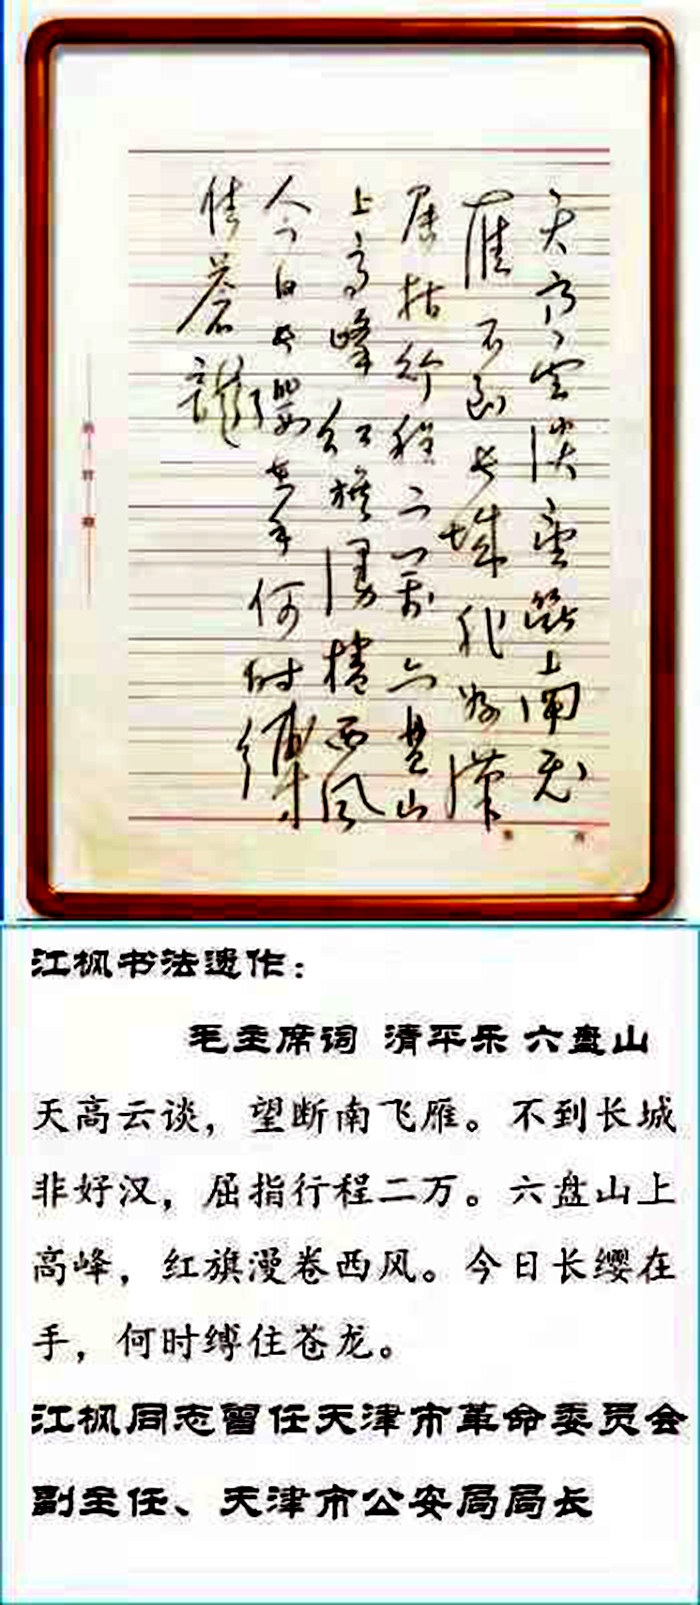 天高雲淡望斷南飛
雁不到長城非好漢
屈指行程二万六盘山
上高峰红旗漫捲西风
今日長纓在手何时縛
住蒼龍
江枫书法遗作：
毛主席词 清平乐 六盘山
天高云谈，望断南飞雁。不到长城
非好汉，屈指行程二万。六盘山上
高峰，红旗漫卷西风。今日长缨在
手，何时缚住苍龙。
江枫同志曾任天津市革命委员会
副主任、天津市公安局局长